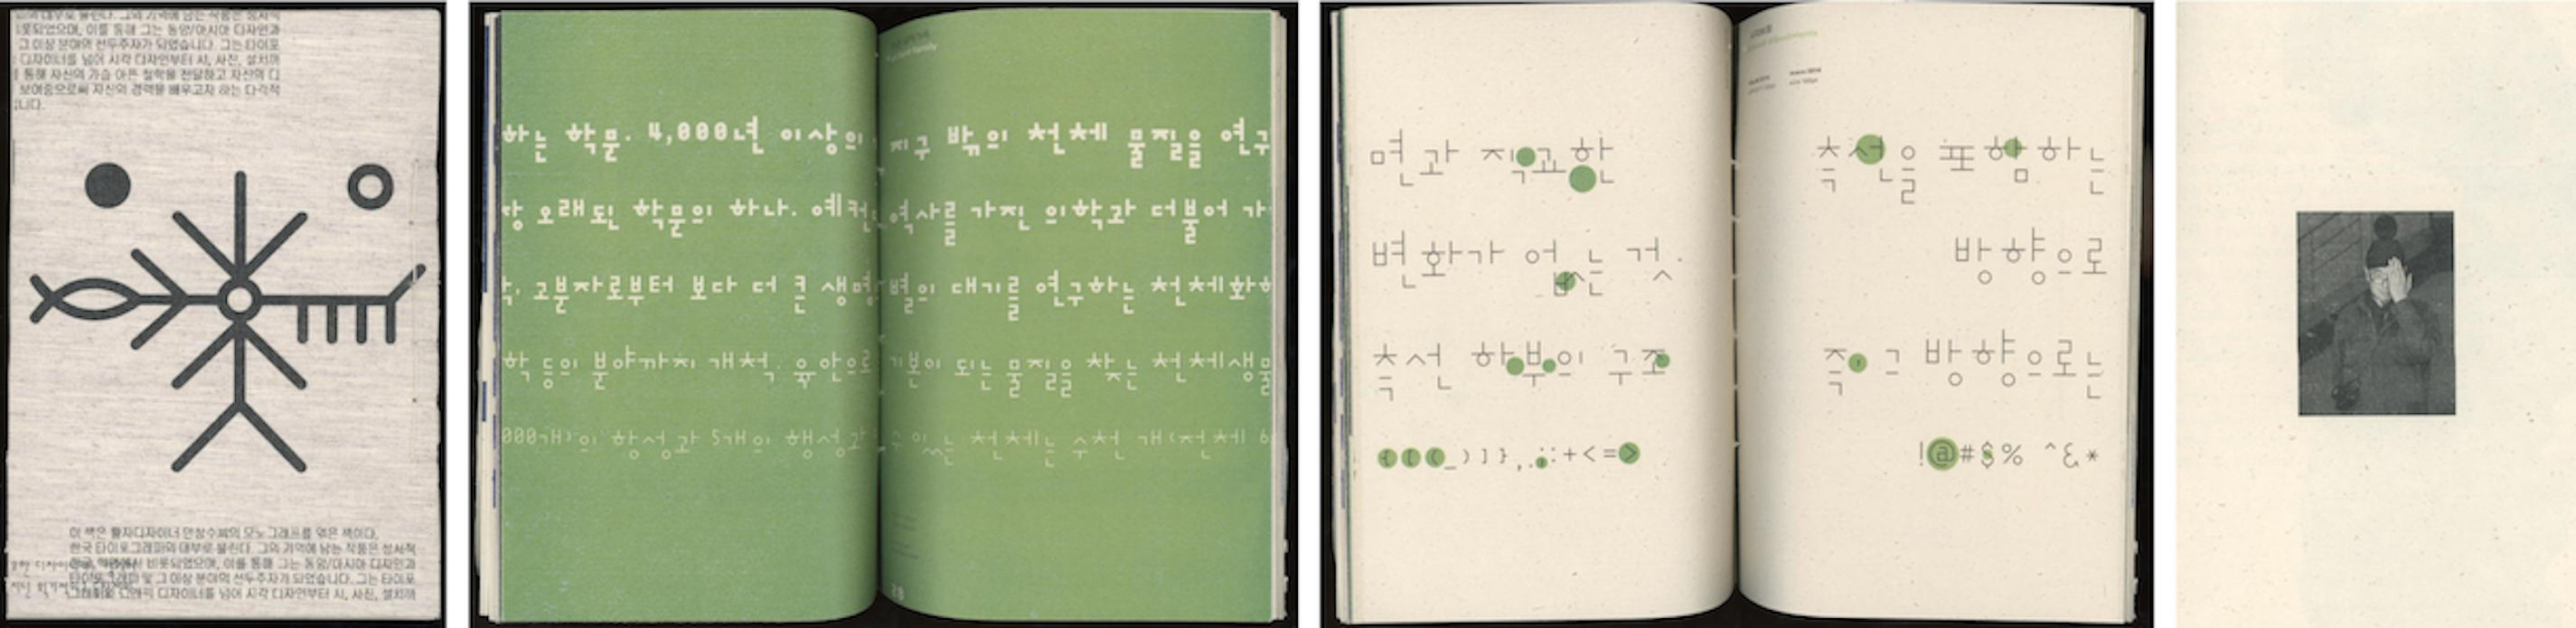 못되었으며, 이를 통해 그는 동양/아시아 디자인과
그 이상 분야의 선두주자가 되었습니다. 그는 타이포
디자이너를 넘어 시각 디자인부터 시, 사진, 설치까
통해 자신의 가슴 아픈 철학을 전달하고 자신의 디
보여줌으로써 자신의 경력을 배우고자 하는 다각적
니다.
이 책은 활자디자이너 안상수씨의 모노그래프를 엮은 책이다.
한국 타이포그래피의 대부로 불린다. 그의 기억에 남는 작품은 성서적
비롯되었으며, 이를 통해 그는 동양/아시아 디자인과
및 그 이상 분야의 선두주자가 되었습니다. 그는 타이포
디자이너를 넘어 시각 디자인부터 시, 사진, 설치까
family
하는 학문. 4,000년 이상의
장 오래된 학문의 하나. 예컨
고분자로부터 보다 더 큰 생명
학 등의 분야까지 개척. 육안으로
000개)의 항성과 5개의 행성과
지구 밖의 천체 물질을 연구
역사를 가진 의학과 더불어 가
별의 대기를 연구하는 천체화학
기본이 되는 물질을 찾는 천체생물
수 있는 천체는 수천 개(천체 6
28
면과 직교한
변화가 없는 것.
축선 하부의 구조
{[(_)]},.;:+<=>
축선을 포함하는
방향으로
즉, 그 방향으로는
!@#$% ^&*